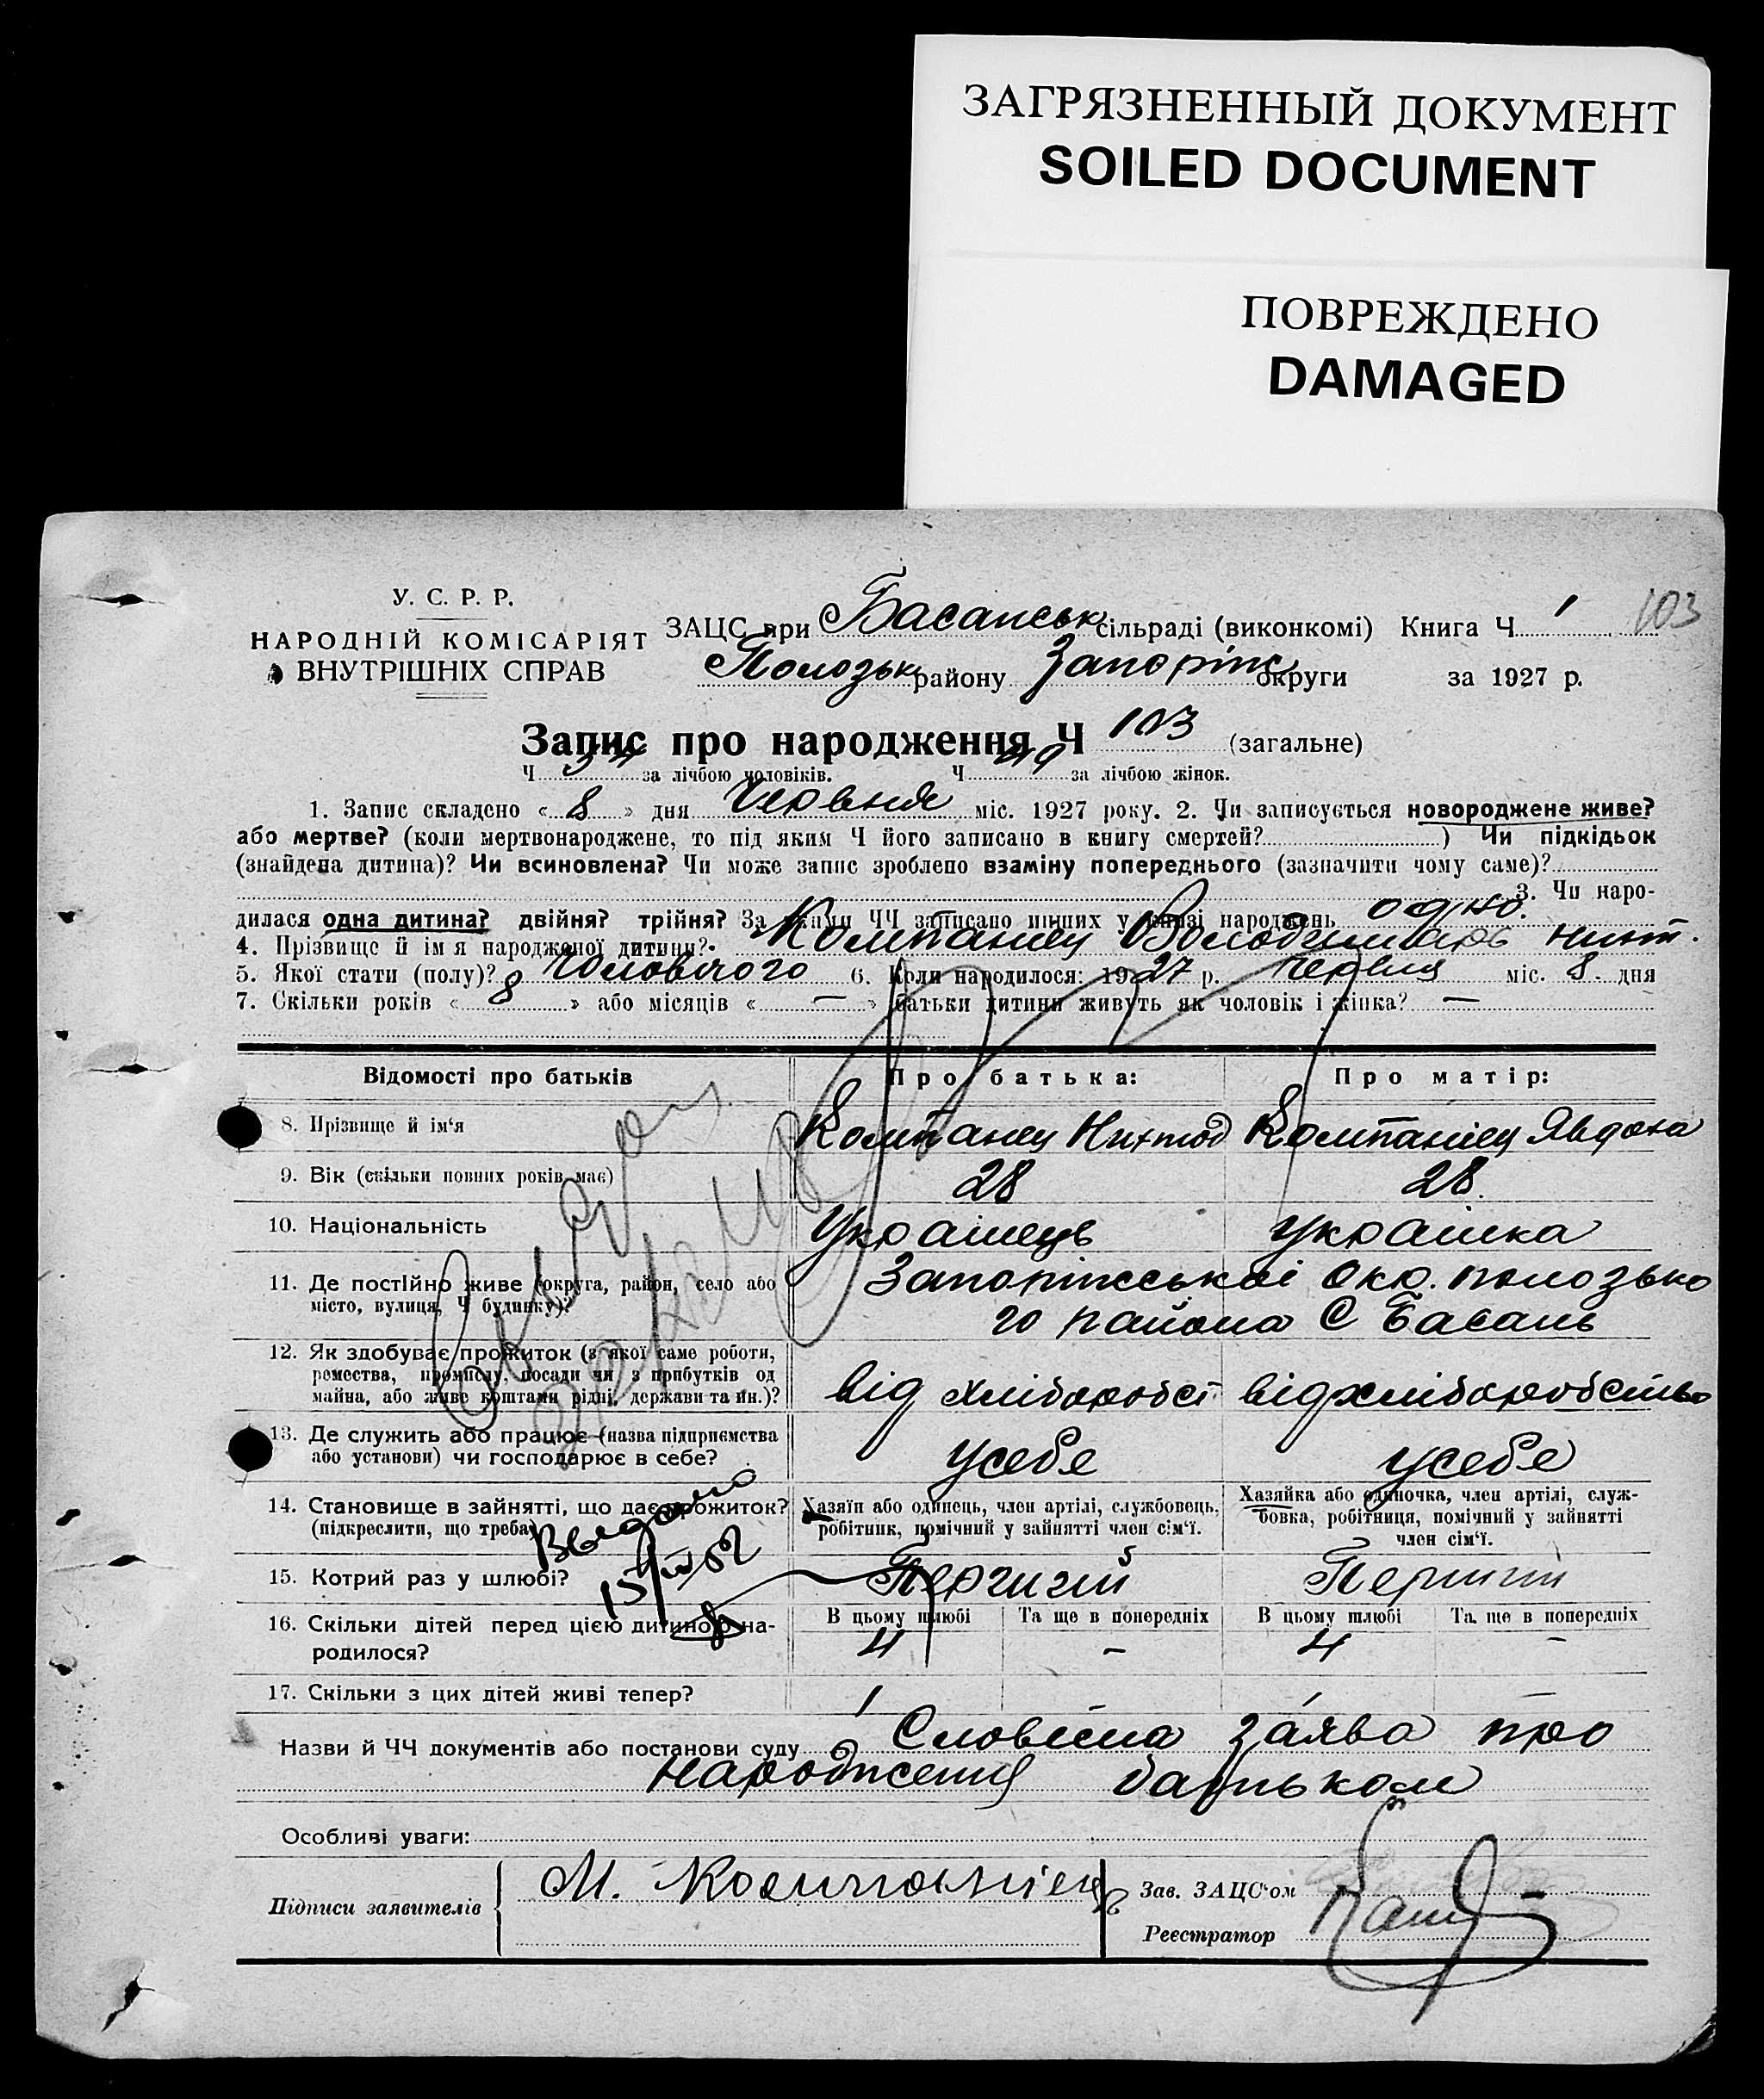 ЗАГРЯЗНЕННЫЙ ДОКУМЕНТ
SOILED DOCUMENT
ПОВРЕЖДЕНО
DAMAGED
У. С. Р. Р.
НАРОДНІЙ КОМІСАРІЯТ
ВНУТРІШНІХ СПРАВ
ЗАЦС при Басанськ сільраді (виконкомі) Книга Ч 1 103
Полозьк району Запоріж округи за 1927 р.
Запис про народження Ч 103 (загальне)
Ч 54 за лічбою чоловіків. Ч 49 за лічбою жінок.
1. Запис складено « 8 » дня Червня міс. 1927 року. 2. Чи записується новороджене живе?
або мертве? (коли мертвонароджене, то під яким Ч його записано в книгу смертей? ) Чи підкідьок
(знайдена дитина)? Чи всиновлена? Чи може запис зроблено взаміну попереднього (зазначити чому саме)?
3. Чи наро-
дилася одна дитина? двійня? трійня? За якими ЧЧ записано инших у книзі народжень одно.
4. Прізвище й ім'я народженої дитини? Компанієц Володимиръ
5. Якої стати (полу)? Чоловічого 6. Коли народилося: 1927 р. Червня міс. 8 дня
7. Скільки років « 8 » або місяців « — » батьки дитини живуть як чоловік і жінка? —
Відомості про батьків Про батька: Про матір:
8. Прізвище й ім'я Компанец Компанієц Явдоха
9. Вік (скільки повних років має) 28 28.
10. Національність Українець Українка
11. Де постійно живе (округа, район, село або
місто, вулиця, Ч будинку)? Запоріжської Окр. Полозько
го району С Басань
12. Як здобуває прожиток (з якої саме роботи,
ремества, промислу, посади чи з прибутків од
майна, або живе коштами рідні, держави та ин.)? від хліборобст від хліборобства
13. Де служить або працює (назва підприємства
або установи) чи господарює в себе? усебе усебе
14. Становище в зайнятті, що дає прожиток?
(підкреслити, що треба)
Хазяїн або одинець, член артілі, службовець,
робітник, помічний у зайнятті член сім'ї.
Хазяйка або одиночка, член артілі, служ-
бовка, робітниця, помічний у зайнятті
член сім'ї.
Выдано
15. Котрий раз у шлюбі? Перший Перший
16. Скільки дітей перед цією дитиною на-
родилося?
В цьому шлюбі Та ще в попередніх В цьому шлюбі Та ще в попередніх
4 – 4 –
17. Скільки з цих дітей живі тепер? 1 1 –
Назви й ЧЧ документів або постанови суду Словесна заява про
народження батьком
Особливі уваги:
Підписи заявителів М. Компанієц
Зав. ЗАЦС'ом
Реєстратор